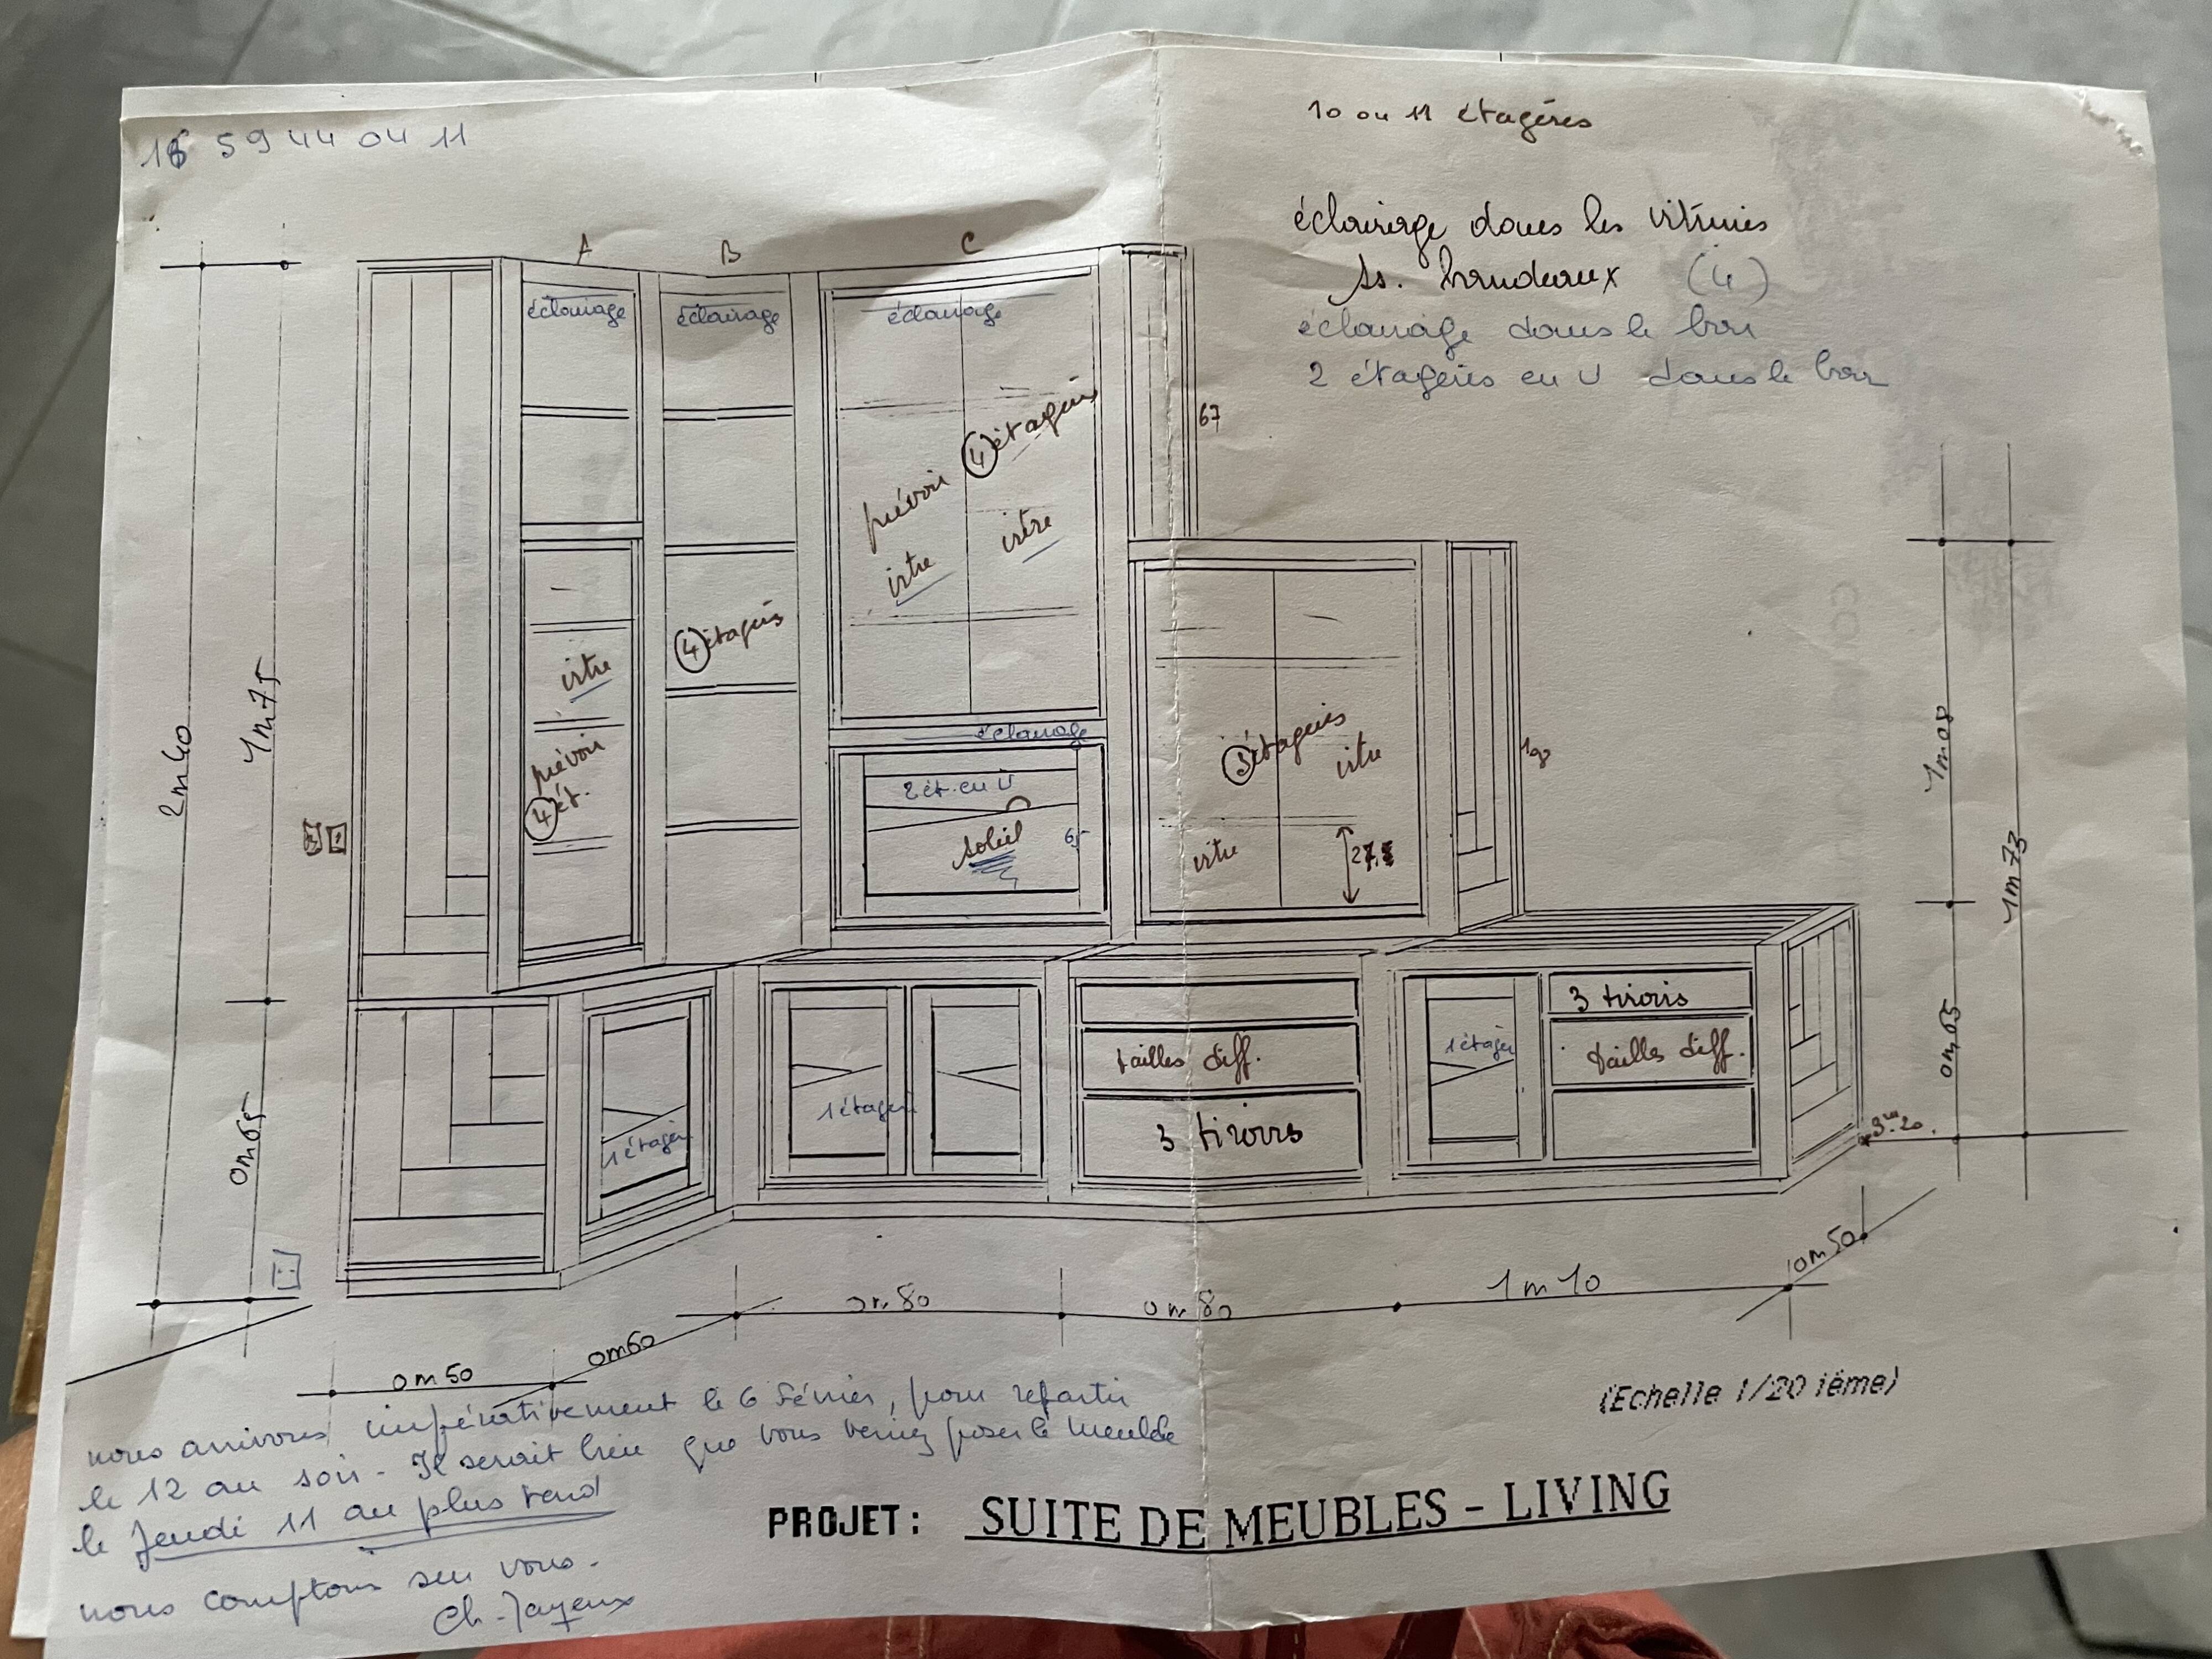 16 59 44 04 11
10 ou 11 étagères
éclairage dans les vitrines
ss. bandeaux (4)
éclairage dans le bar
2 étagères en U dans le bar
A
B
C
éclairage
éclairage
éclairage
67
prévoir 4 étagères
vitre
vitre
vitre
4 étagères
prévoir
4 ét.
éclairage
2 ét. en U
soleil
65
3 étagères
vitre
vitre
27,5
2m40
1m75
0m65
1m08
1m73
0m65
3 tiroirs
tailles diff.
1 étagère
tailles diff.
3 tiroirs
1 étagère
1 étagère
3m20
0m50
0m60
0m80
0m80
1m10
0m50
nous arrivons impérativement le 6 Février, pour repartir
le 12 au soir - Il serait bien que vous veniez poser le meuble
le Jeudi 11 au plus tard
nous comptons sur vous.
(Echelle 1/20 ième)
PROJET : SUITE DE MEUBLES - LIVING